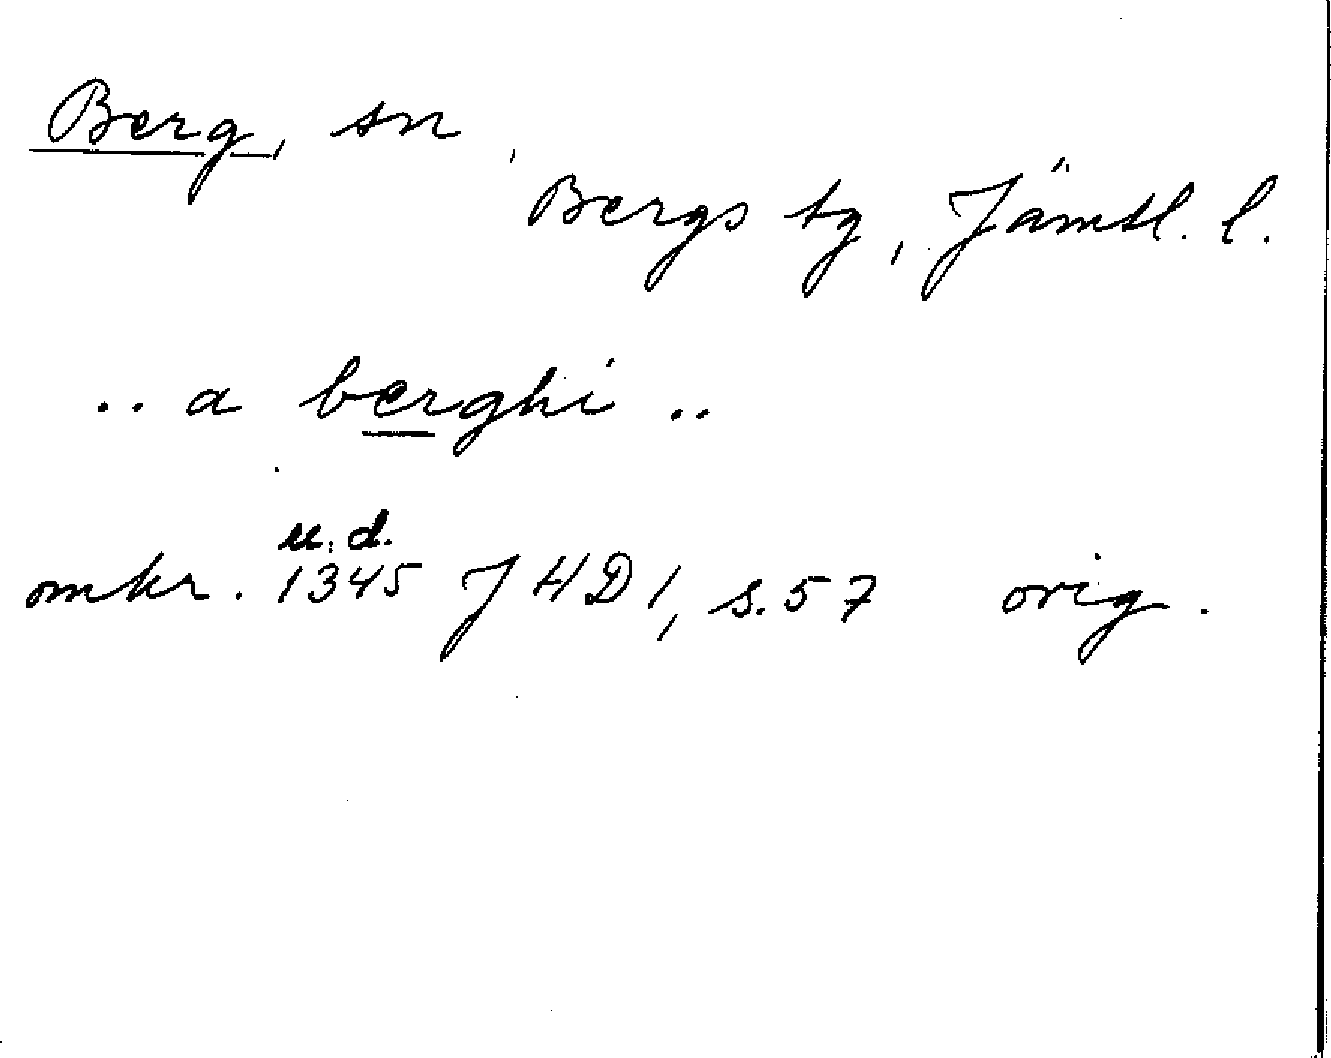 Berg, sn
Bergs tg, Jämtl. l.
.. a berghi ..
u. d.
omkr. 1345 JHD 1, s. 57 orig.